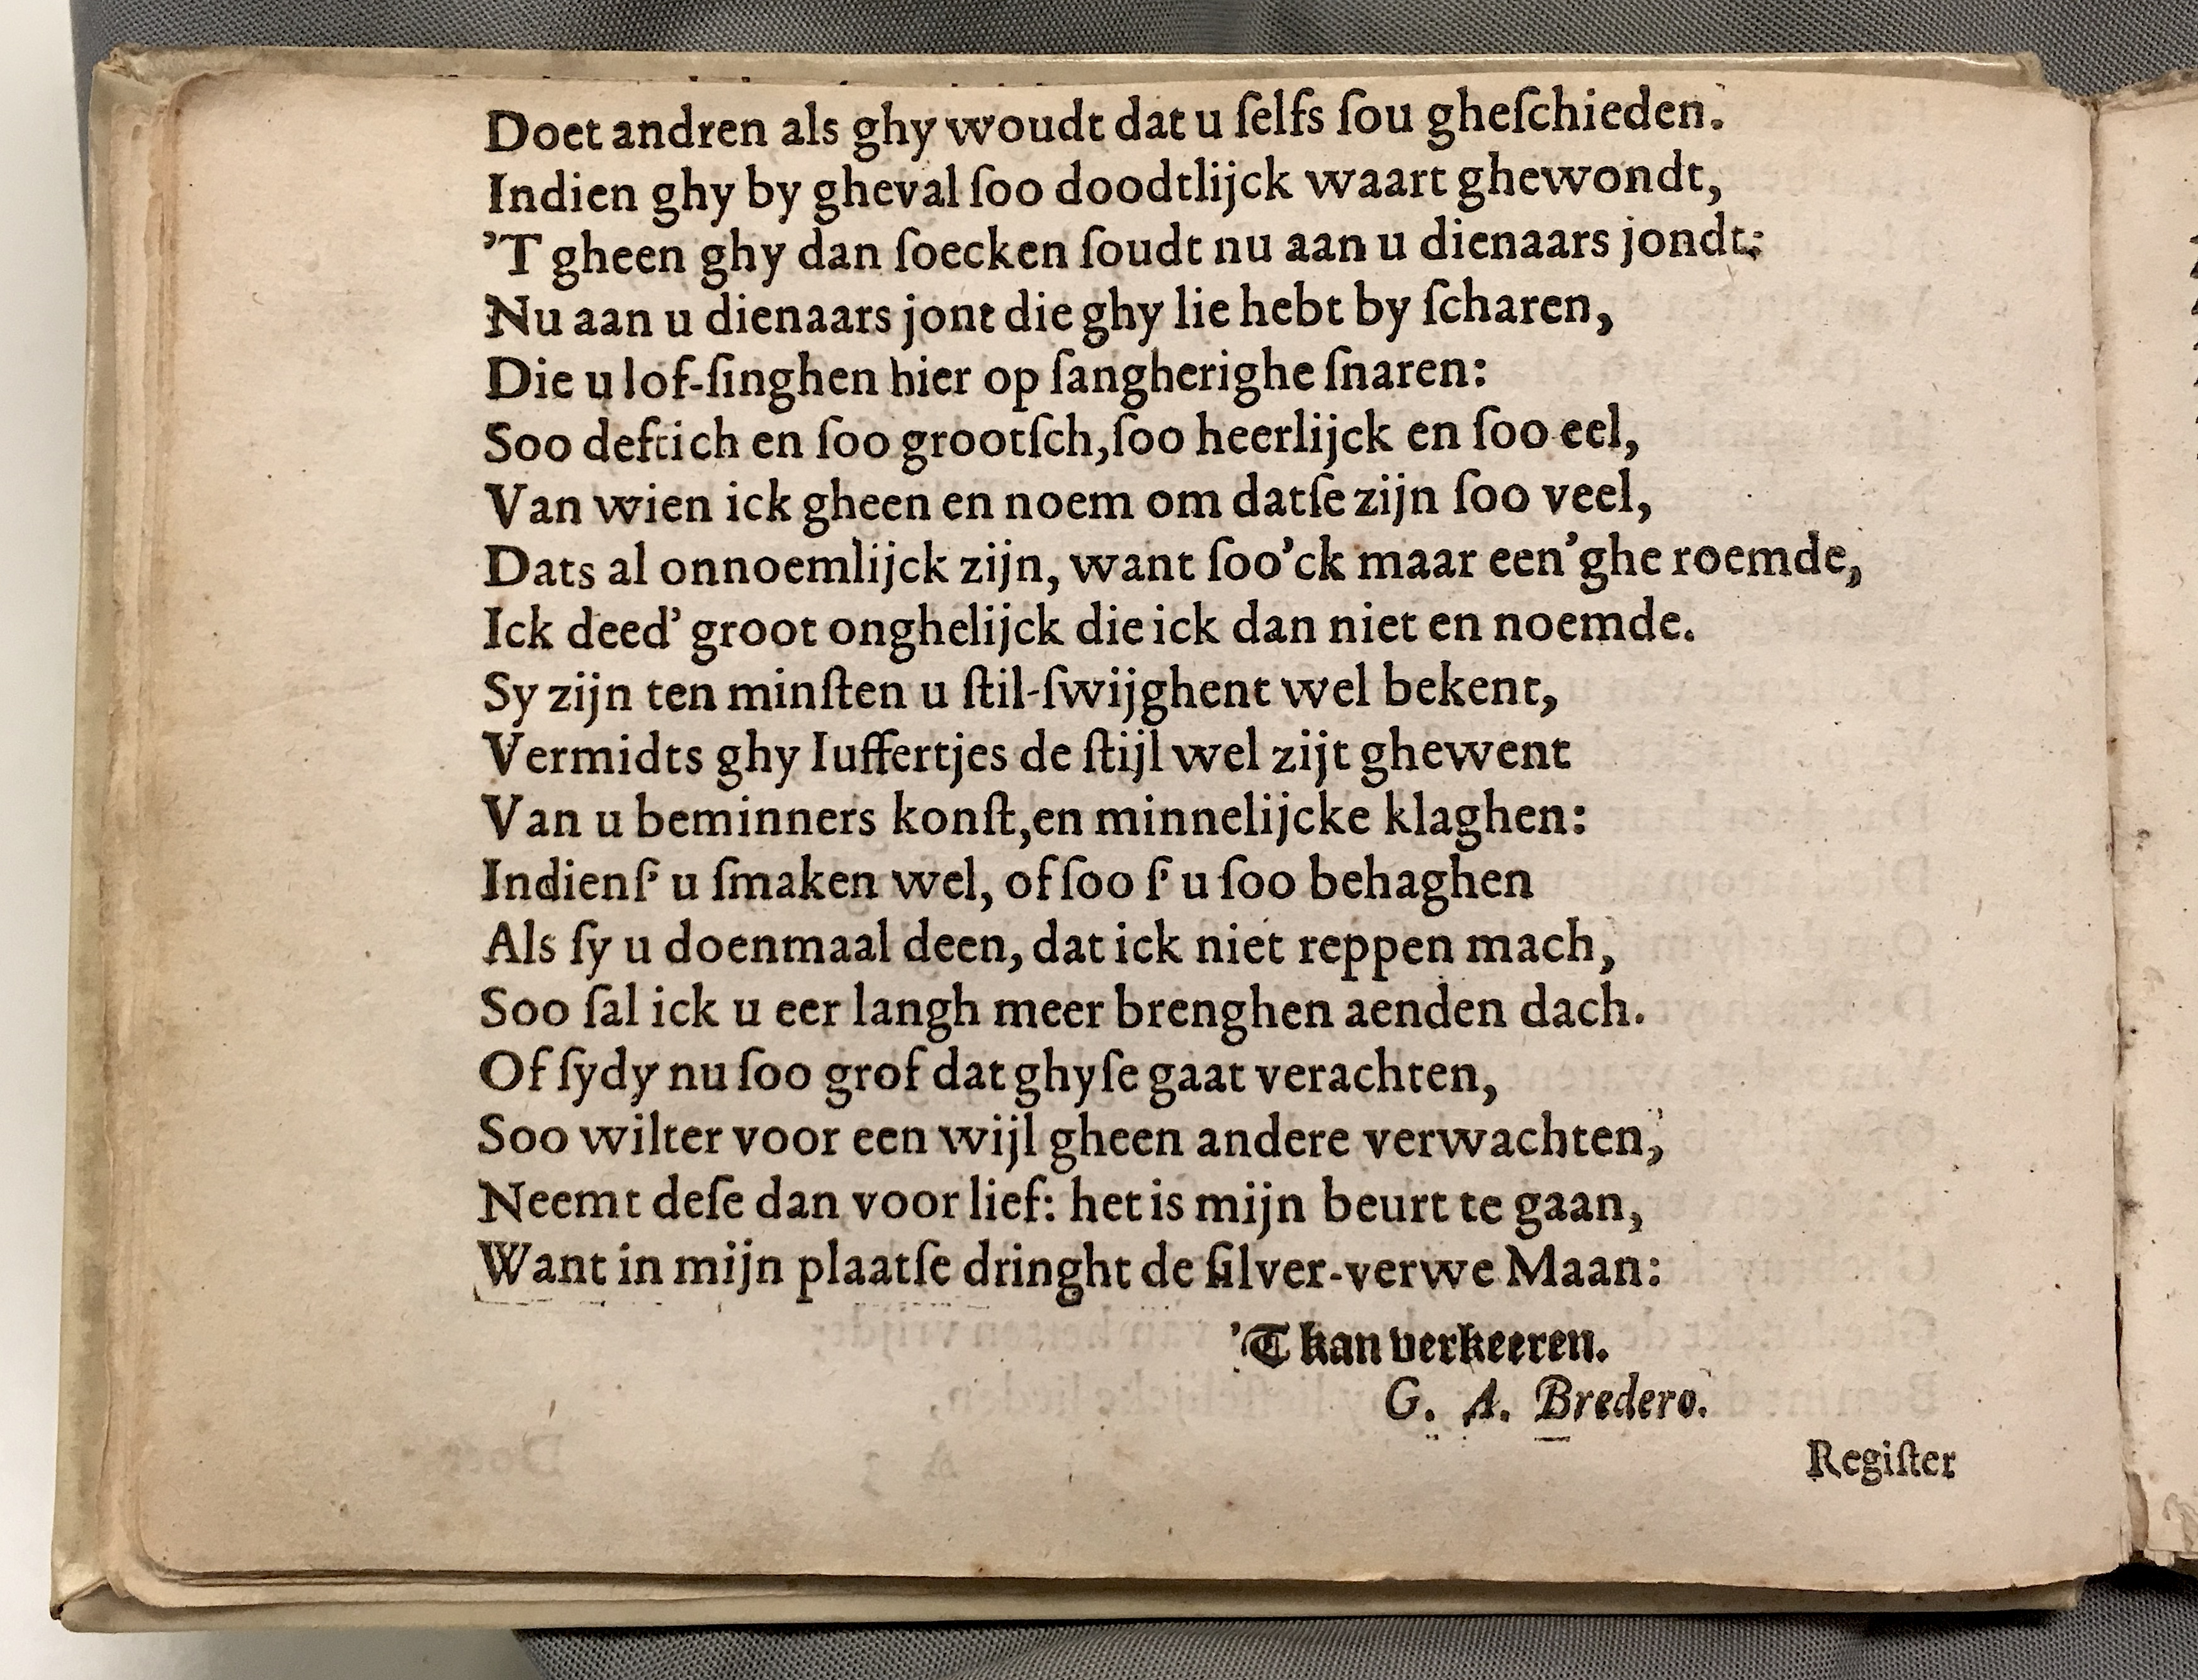 Doet andren als ghy woudt dat u ſelfs ſou gheſchieden.
Indien ghy by gheval ſoo doodtlijck waart ghewondt,
’T gheen ghy dan ſoecken ſoudt nu aan u dienaars jondt:
Nu aan u dienaars jont die ghy lie hebt by ſcharen,
Die u lof-ſinghen hier op ſangherighe ſnaren:
Soo deftich en ſoo grootſch, ſoo heerlijck en ſoo eel,
Van wien ick gheen en noem om datſe zijn ſoo veel,
Dats al onnoemlijck zijn, want ſoo’ck maar een’ghe roemde,
Ick deed’ groot onghelijck die ick dan niet en noemde.
Sy zijn ten minſten u ſtil-ſwijghent wel bekent,
Vermidts ghy Iuffertjes de ſtijl wel zijt ghewent
Van u beminners konſt, en minnelijcke klaghen:
Indienſ’ u ſmaken wel, of ſoo ſ’ u ſoo behaghen
Als ſy u doenmaal deen, dat ick niet reppen mach,
Soo ſal ick u eer langh meer brenghen aenden dach.
Of ſydy nu ſoo grof dat ghyſe gaat verachten,
Soo wilter voor een wijl gheen andere verwachten,
Neemt deſe dan voor lief: het is mijn beurt te gaan,
Want in mijn plaatſe dringht de ſilver-verwe Maan:
’T kan verkeeren.
G. A. Bredero.
Regiſter